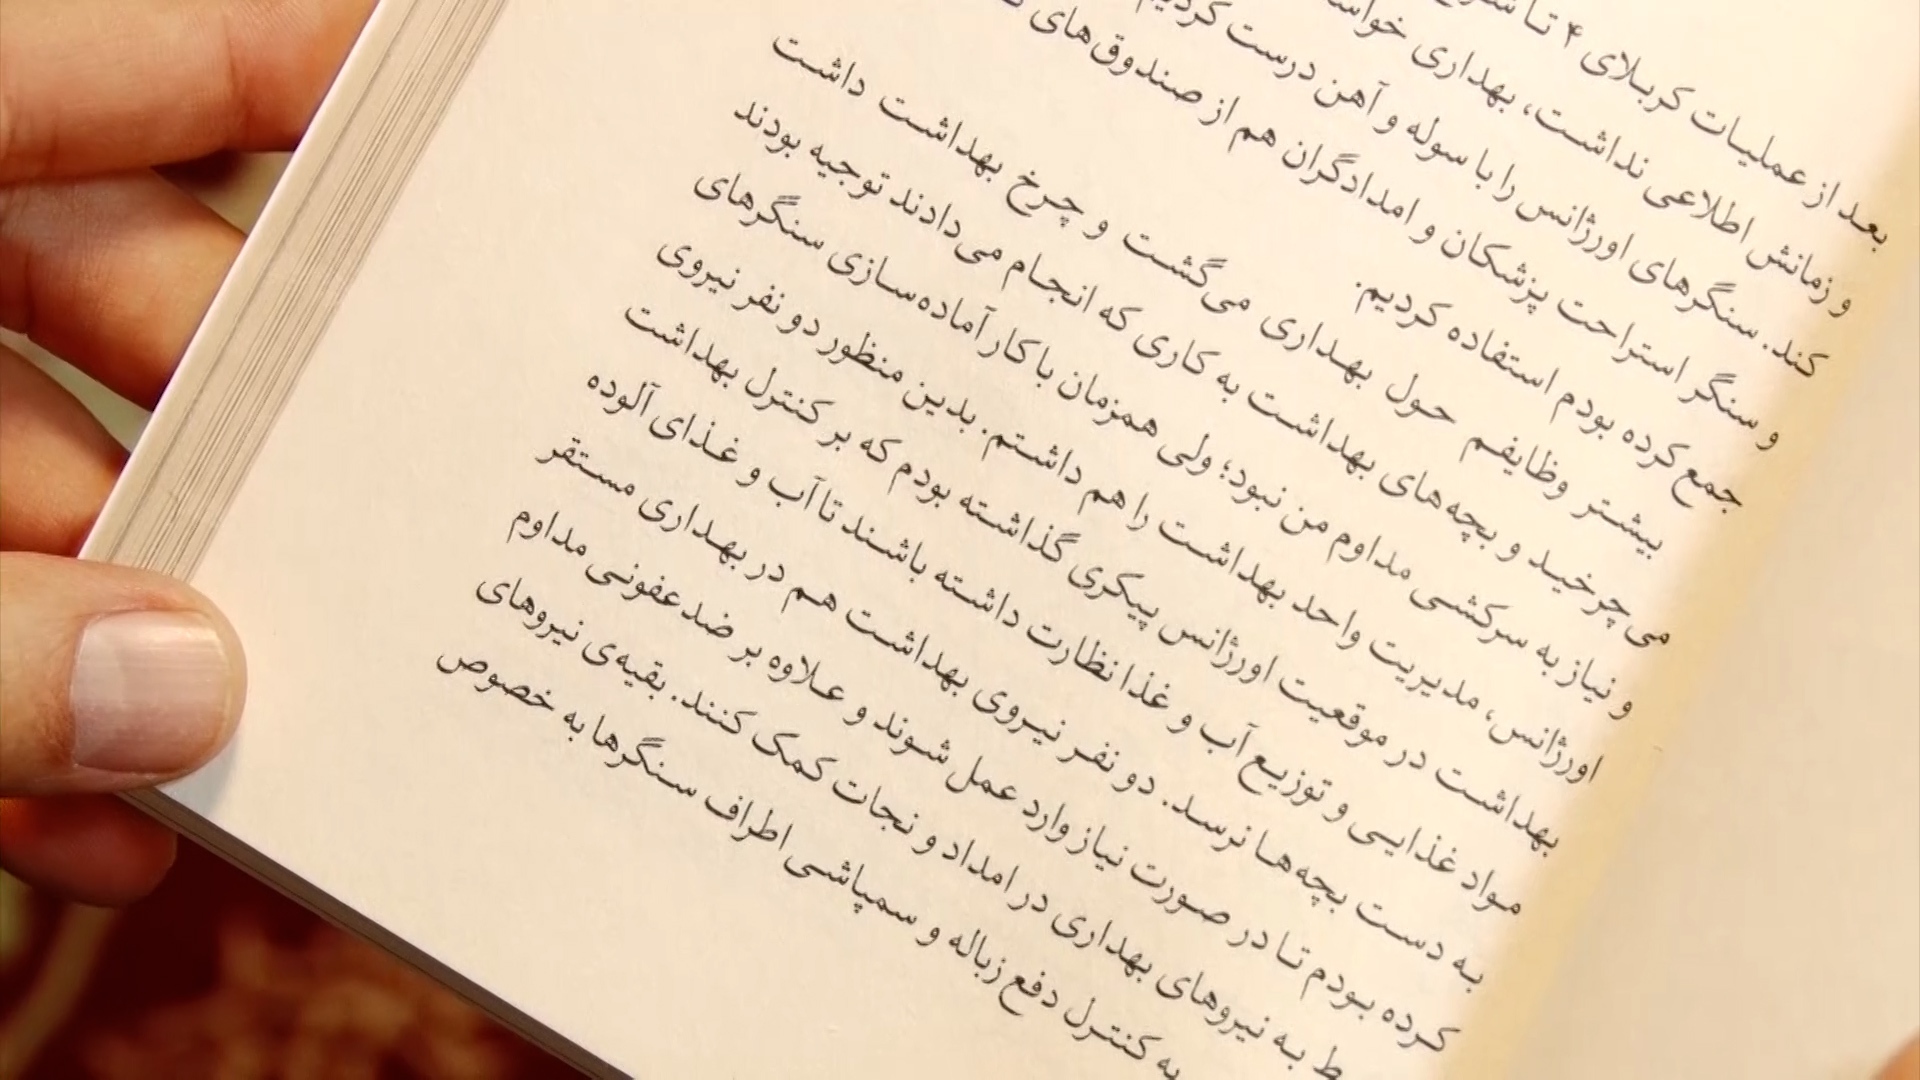 بعد از عملیات کربلای ۴ تا
و زمانش اطلاعی نداشت، بهداری
کند. سنگرهای اورژانس را با سوله و آهن درست کردیم
و سنگر استراحت پزشکان و امدادگران هم از صندوق‌های
جمع کرده بودم استفاده کردیم.
بیشتر وظایفم حول بهداری می‌گشت و چرخ بهداشت داشت
می‌چرخید و بچه‌های بهداشت به کاری که انجام می‌دادند توجیه بودند
و نیاز به سرکشی مداوم من نبود؛ ولی همزمان با کار آماده‌سازی سنگرهای
اورژانس، مدیریت واحد بهداشت را هم داشتم. بدین منظور دو نفر نیروی
بهداشت در موقعیت اورژانس پیکری گذاشته بودم که بر کنترل بهداشت
مواد غذایی و توزیع آب و غذا نظارت داشته باشند تا آب و غذای آلوده
به دست بچه‌ها نرسد. دو نفر نیروی بهداشت هم در بهداری مستقر
کرده بودم تا در صورت نیاز وارد عمل شوند و علاوه بر ضدعفونی مداوم
به نیروهای بهداری در امداد و نجات کمک کنند. بقیه‌ی نیروهای
به کنترل دفع زباله و سمپاشی اطراف سنگرها به خصوص